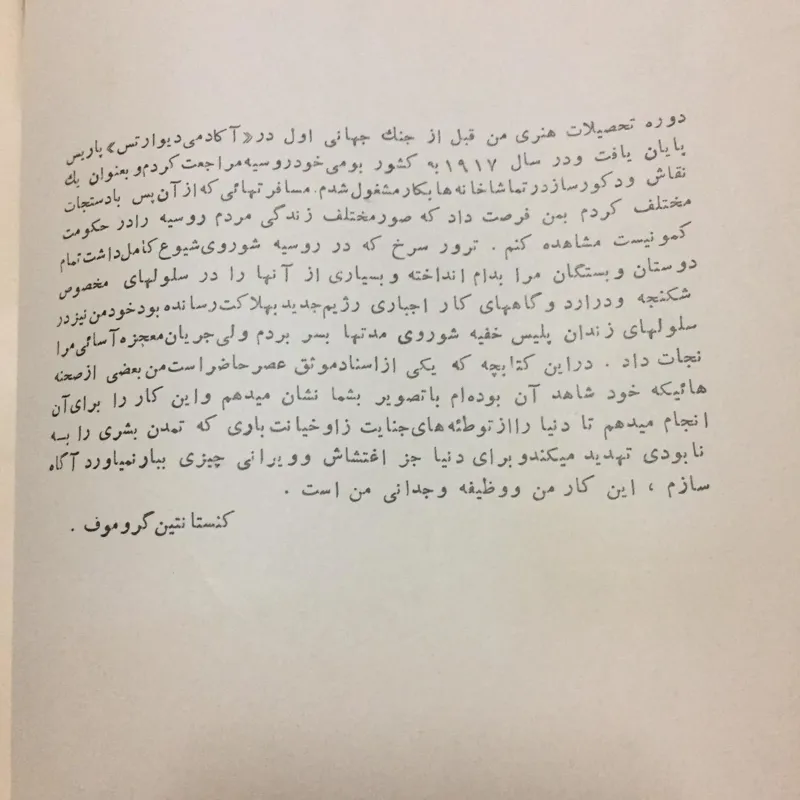 دوره تحصیلات هنری من قبل از جنك جهانی اول در«آکادمی دیوارتس»پاریس
پایان یافت ودر سال ۱۹۱۷ به کشور بومی خودروسیه مراجعت کردم و بعنوان یك
نقاش ودکورساز در تماشاخانه ها بکار مشغول شدم. مسافرتهائی که از آن پس بادستجات
مختلف کردم بمن فرصت داد که صورمختلف زندگی مردم روسیه رادر حکومت
کمونیست مشاهده کنم . ترور سرخ که در روسیه شوروی شیوع کامل داشت تمام
دوستان وبستگان مرا بدام انداخته وبسیاری از آنها را در سلولهای مخصوص
شکنجه ودرارد وگاههای کار اجباری رژیم جدید بهلاکت رسانده بود خود من نیز در
سلولهای زندان پلیس خفیه شوروی مدتها بسر بردم ولی جریان معجزه آسائی مرا
نجات داد . دراین کتابچه که یکی از اسناد موثق عصر حاضر است من بعضی از صحنه
هائیکه خود شاهد آن بوده‌ام باتصویر بشما نشان میدهم واین کار را برای آن
انجام میدهم تا دنیا رااز توطئه های جنایت زاوخیانت باری که تمدن بشری را بسه
نابودی تهدید میکندوبرای دنیا جز اغتشاش وویرانی چیزی ببار نمیاورد آگاه
سازم ، این کار من ووظیفه وجدانی من است .
کنستانتین گروموف .